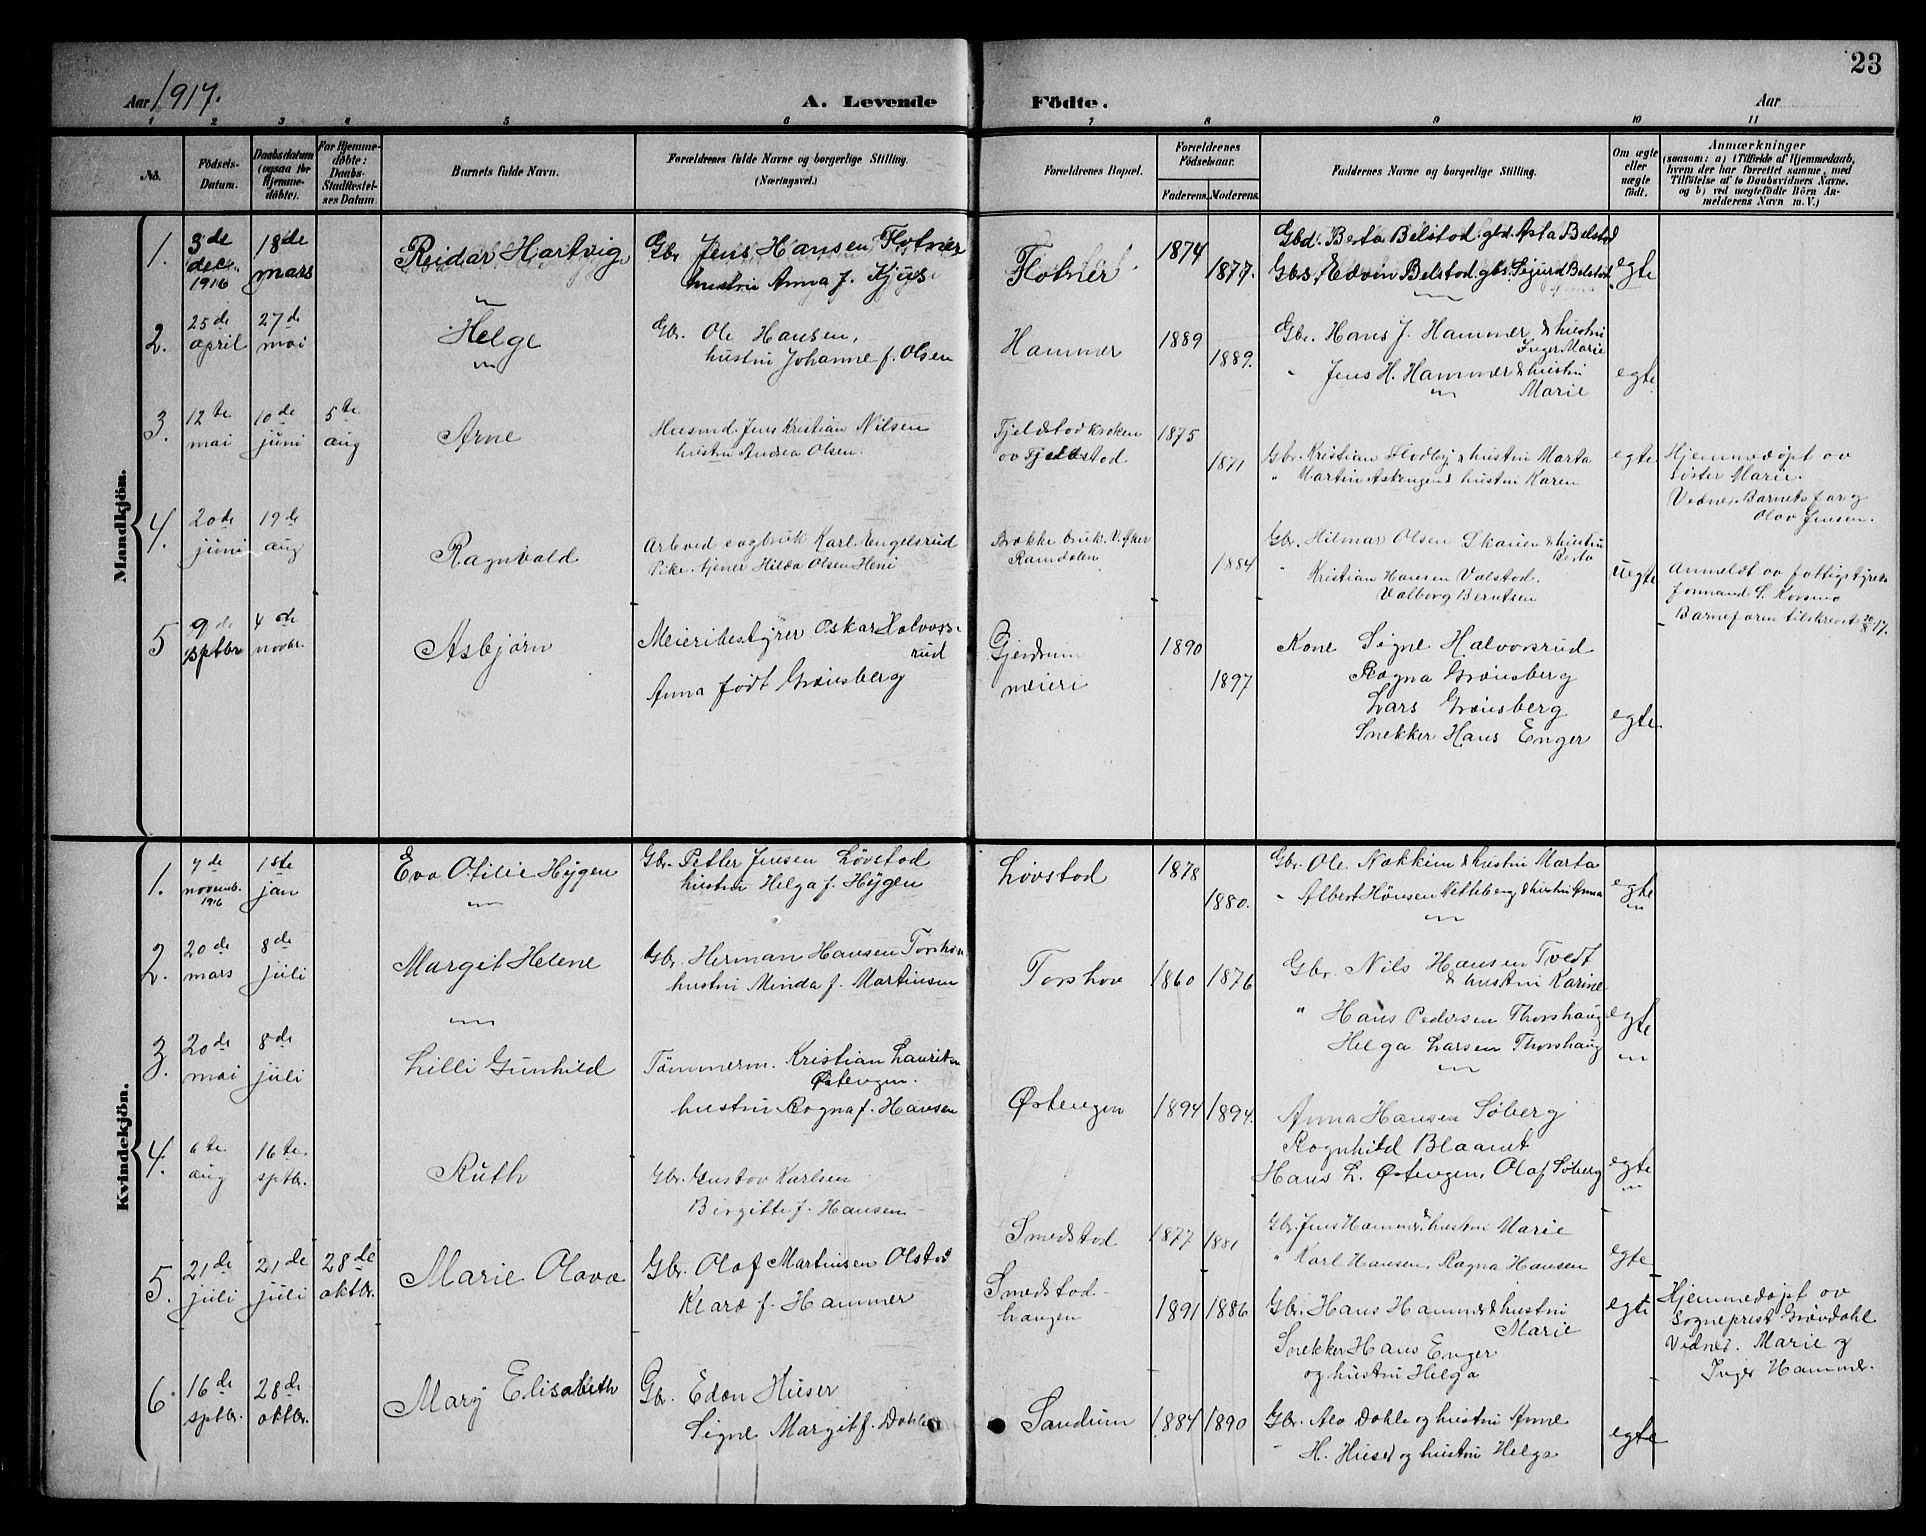 23
Aar 1917.
A. Levende Födte.
Aar
1 2 3 4 5 6 7 8 9 10 11
No.
Födsels-Datum.
Daabsdatum (ogsaa for Hjemme-döbte).
For Hjemme-döbte: Daabs-Stadfæstel-ses Datum.
Barnets fulde Navn.
Forældrenes fulde Navne og borgerlige Stilling. (Næringsvei.)
Forældrenes Bopæl.
Forældrenes Födselsaar.
Faderens. Moderens.
Faddernes Navne og borgerlige Stilling.
Om ægte eller uægte født.
Anmærkninger
(saasom: a) i Tilfælde af Hjemmedaab, hvem der har forrettet samme, med Tilføielse af to Daabsvidners Navne, og b) ved uægtefödte Börn An-melderens Navn m. V.)
Mandkjön.
1. 3de dec. 1916 18de mars
Reidar Hartvig
Gbr. Jens Hansen Flotner
hustru Anna f. Kjus
Flotner
1874 1877.
Gbd. Berta Belstad. gbd. Asta Belstad
Gbs. Edvin Belstad. gbs. Sigurd Belstad
egte
2. 25de april 27de mai
Helge
Gbr. Ole Hansen,
hustru Johanne f. Olsen
Hammer
1889 1889.
Gbr. Hans J. Hammer & hustru
Inger Marie
" Jens H. Hammer & hustru
Marie
egte
3. 12te mai 10de juni 5te aug
Arne
Husmd. Jens Kristian Nilsen
hustru Andrea Olsen.
Fjeldstadkroken
av Fjeldstad
1875 1871
Gbr. Kristian Flodby & hustru Marta
" Martin Askengen & hustru Karen
egte
Hjemmedøpt av
søster Marie.
Vidner. Barnets far og
Olav Jensen.
4. 20de juni 19de aug
Ragnvald
Arbeid Karl Engelsrud
Pike tjener Hilda Olsen Heni
1884
Gbr. Hilmar Olsen Skauen & hustru
Berta
" Kristian Hansen Valstad.
Valborg Berntsen
uegte
Anmeldt av fattigstyrets
formand
Barnefaren tilskrevet 20/8 17.
5 9de septbr 4de novbr.
Asbjørn
Meieribestyrer Oskar Halvors-
rud
Anna født Grønsberg
Gjerdrum
meieri
1890 1897
Kone Signe Halvorsrud
Ragna Grønsberg
Lars Grønsberg
Snekker Hans Enger
egte
Kvindekjön.
1. 7de novemb. 1916 1ste jan
Eva Otilie Hygen
Gbr. Petter Jensen Løvstad
hustru Helga f. Hygen
Løvstad
1878 1880.
Gbr. Ole Nakkim & hustru Marta
" Albert Hansen Vetteberg & hustru Anna
egte
2. 20de mars 8de juli
Margit Helene
Gbr. Herman Hansen Torshov
hustru Minda f. Martinsen
Torshov
1860 1876
Gbr. Nils Hansen Tvedt
& hustru Karine
" Hans Pedersen Thorshaug
Helga Larsen Thorshaug
egte
3. 20de mai 8de juli
Lilli Gunhild
Tømmerm. Kristian Lauritsen
Østengen.
hustru Ragna f. Hansen
Østengen
1894 1894.
Anna Hansen Søberg
Ragnhild Blaamt
Hans L. Østengen, Olaf Søberg
egte
4. 6te aug 16te septbr.
Ruth
Gbr. Gustav Karlsen
Birgitte f. Hansen
Smedstad
1877 1881
Gbr. Jens Hammer & hustru Marie
" Karl Hansen, Ragna Hansen
egte
5. 21de juli 21de juli 28de oktbr.
Marie Olava
Gbr. Olaf Martinsen Olstad
Klara f. Hammer
Smedstad-
haugen
1891 1886
Gbr. Hans Hammer & hustru
Marie
Snekker Hans Enger
og hustru Helga
egte
Hjemmedøpt av
Sogneprest Grøndahl
Vidner. Marie og
Inger Hammer.
6. 16de septbr. 28de oktbr.
Mary Elisabeth
Gbr. Edon Huser
Signe Margit f. Dahle
Sandum
1884 1890
Gbr. Alv Dahle og hustru Anne
" H. Huser og hustru Helga
egte